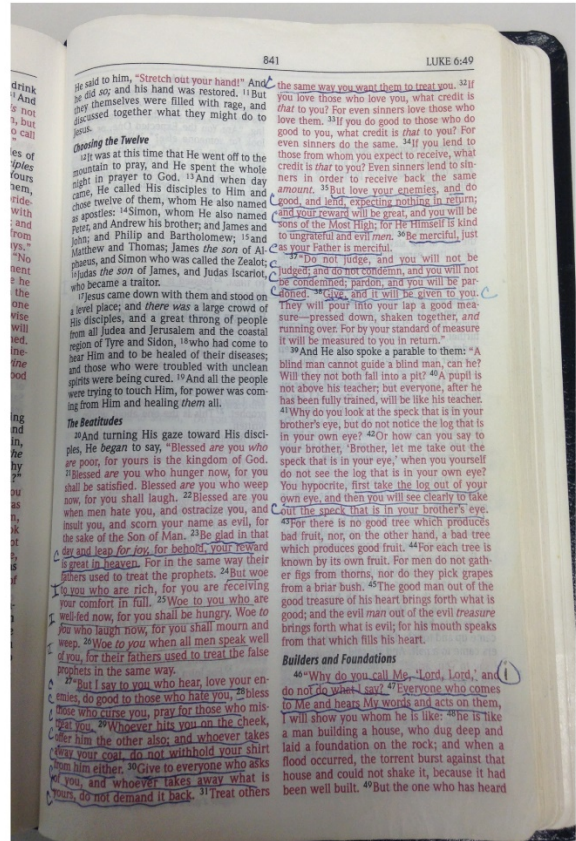 841
LUKE 6:49
drink
And
s not
n, but
o call
es of
ciples
Yours
hem,
pride-
with
; and
from
ys."
"No
ment
he
the
one
wise
will
ned.
ine-
ine
ood
He said to him, "Stretch out your hand!" And
he did so; and his hand was restored. 11But
they themselves were filled with rage, and
discussed together what they might do to
Jesus.
Choosing the Twelve
12It was at this time that He went off to the
mountain to pray, and He spent the whole
night in prayer to God. 13And when day
came, He called His disciples to Him and
chose twelve of them, whom He also named
as apostles: 14Simon, whom He also named
Peter, and Andrew his brother; and James and
John; and Philip and Bartholomew; 15and
Matthew and Thomas; James the son of Al-
phaeus, and Simon who was called the Zealot;
16Judas the son of James, and Judas Iscariot,
who became a traitor.
17Jesus came down with them and stood on
a level place; and there was a large crowd of
His disciples, and a great throng of people
from all Judea and Jerusalem and the coastal
region of Tyre and Sidon, 18who had come to
hear Him and to be healed of their diseases;
and those who were troubled with unclean
spirits were being cured. 19And all the people
were trying to touch Him, for power was com-
ing from Him and healing them all.
The Beatitudes
20And turning His gaze toward His disci-
ples, He began to say, "Blessed are you who
are poor, for yours is the kingdom of God.
21Blessed are you who hunger now, for you
shall be satisfied. Blessed are you who weep
now, for you shall laugh. 22Blessed are you
when men hate you, and ostracize you, and
insult you, and scorn your name as evil, for
the sake of the Son of Man. 23Be glad in that
day and leap for joy, for behold, your reward
is great in heaven. For in the same way their
fathers used to treat the prophets. 24But woe
to you who are rich, for you are receiving
your comfort in full. 25Woe to you who are
well-fed now, for you shall be hungry. Woe to
you who laugh now, for you shall mourn and
weep. 26Woe to you when all men speak well
of you, for their fathers used to treat the false
prophets in the same way.
27"But I say to you who hear, love your en-
emies, do good to those who hate you, 28bless
those who curse you, pray for those who mis-
treat you. 29Whoever hits you on the cheek,
offer him the other also; and whoever takes
away your coat, do not withhold your shirt
from him either. 30Give to everyone who asks
of you, and whoever takes away what is
yours, do not demand it back. 31Treat others
the same way you want them to treat you. 32If
you love those who love you, what credit is
that to you? For even sinners love those who
love them. 33If you do good to those who do
good to you, what credit is that to you? For
even sinners do the same. 34If you lend to
those from whom you expect to receive, what
credit is that to you? Even sinners lend to sin-
ners in order to receive back the same
amount. 35But love your enemies, and do
good, and lend, expecting nothing in return;
and your reward will be great, and you will be
sons of the Most High; for He Himself is kind
to ungrateful and evil men. 36Be merciful, just
as your Father is merciful.
37"Do not judge, and you will not be
judged; and do not condemn, and you will not
be condemned; pardon, and you will be par-
doned. 38Give, and it will be given to you.
They will pour into your lap a good mea-
sure—pressed down, shaken together, and
running over. For by your standard of measure
it will be measured to you in return."
39And He also spoke a parable to them: "A
blind man cannot guide a blind man, can he?
Will they not both fall into a pit? 40A pupil is
not above his teacher; but everyone, after he
has been fully trained, will be like his teacher.
41Why do you look at the speck that is in your
brother's eye, but do not notice the log that is
in your own eye? 42Or how can you say to
your brother, 'Brother, let me take out the
speck that is in your eye,' when you yourself
do not see the log that is in your own eye?
You hypocrite, first take the log out of your
own eye, and then you will see clearly to take
out the speck that is in your brother's eye.
43For there is no good tree which produces
bad fruit, nor, on the other hand, a bad tree
which produces good fruit. 44For each tree is
known by its own fruit. For men do not gath-
er figs from thorns, nor do they pick grapes
from a briar bush. 45The good man out of the
good treasure of his heart brings forth what is
good; and the evil man out of the evil treasure
brings forth what is evil; for his mouth speaks
from that which fills his heart.
Builders and Foundations
46"Why do you call Me, 'Lord, Lord,' and
do not do what I say? 47Everyone who comes
to Me and hears My words and acts on them,
I will show you whom he is like: 48he is like
a man building a house, who dug deep and
laid a foundation on the rock; and when a
flood occurred, the torrent burst against that
house and could not shake it, because it had
been well built. 49But the one who has heard